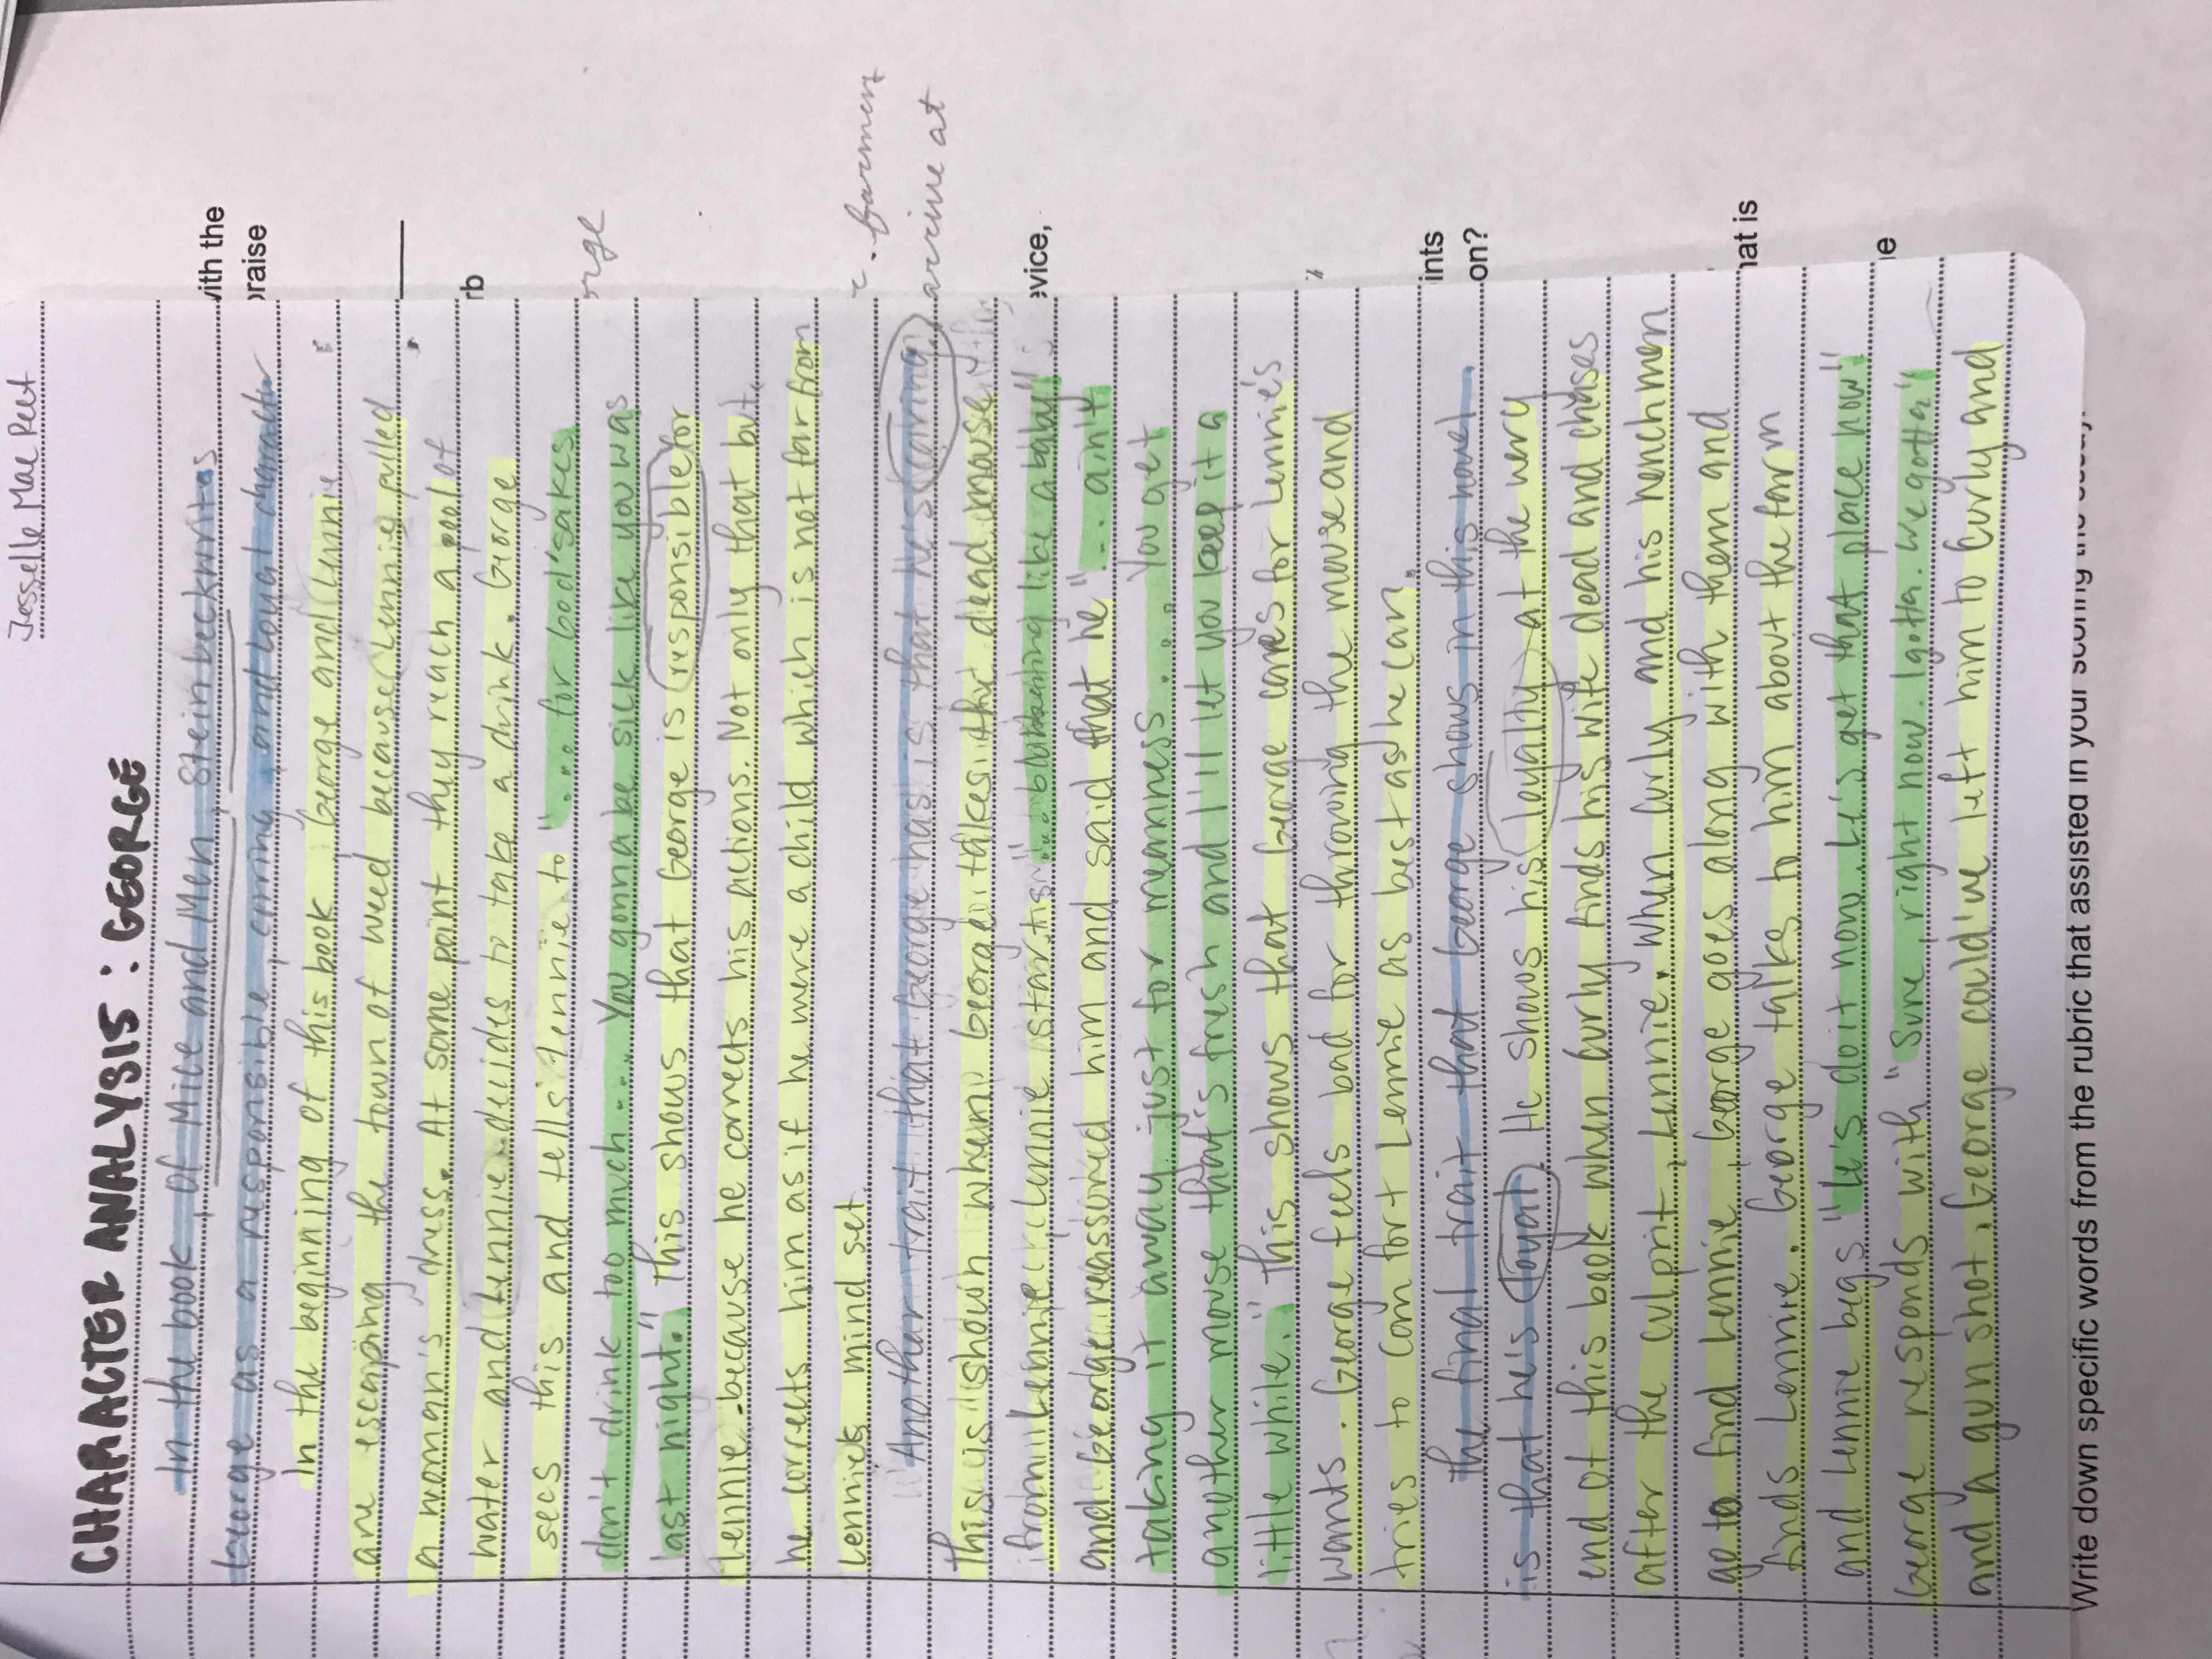 Jesselle Mae Peet
CHARACTER ANALYSIS : GEORGE
In the book, Of Mice and Men, Steinbeck writes
George as a responsible, caring, and loyal character
In the beginning of this book, George and Lennie
are escaping the town of weed because Lennie pulled
a woman's dress. At some point they reach a pool of
water and Lennie decides to take a drink. George
sees this and tells Lennie to "... for God'sakes
don't drink too much.... You gonna be sick like you was
last night." This shows that George is responsible for
Lennie because he corrects his actions. Not only that but,
he corrects him as if he were a child which is not far from
Lennie's mind set.
Another trait that George has is that he's caring.
This is shown when George takes the dead mouse
from Lennie. Lennie starts "...blubbering like a baby"
and George reassured him and said that he "... ain't
taking it away just for meanness.... You get
another mouse that's fresh and I'll let you keep it a
little while." This shows that George cares for Lennie's
wants. George feels bad for throwing the mouse and
tries to comfort Lennie as best as he can.
The final trait that George shows in this novel
is that he's loyal. He shows his loyalty at the very
end of this book when Curly finds his wife dead and chases
after the culprit, Lennie. When Curly and his henchmen
go to find Lennie, George goes along with them and
finds Lennie. George talks to him about the farm
and Lennie begs "Le's do it now. Le's get that place now"
George responds with "Sure, right now. I gotta. We gotta"
and a gun shot. George could've left him to Curly and
Write down specific words from the rubric that assisted in your scoring the
with the
praise
rb
rge
arrive at
evice,
ints
on?
hat is
e